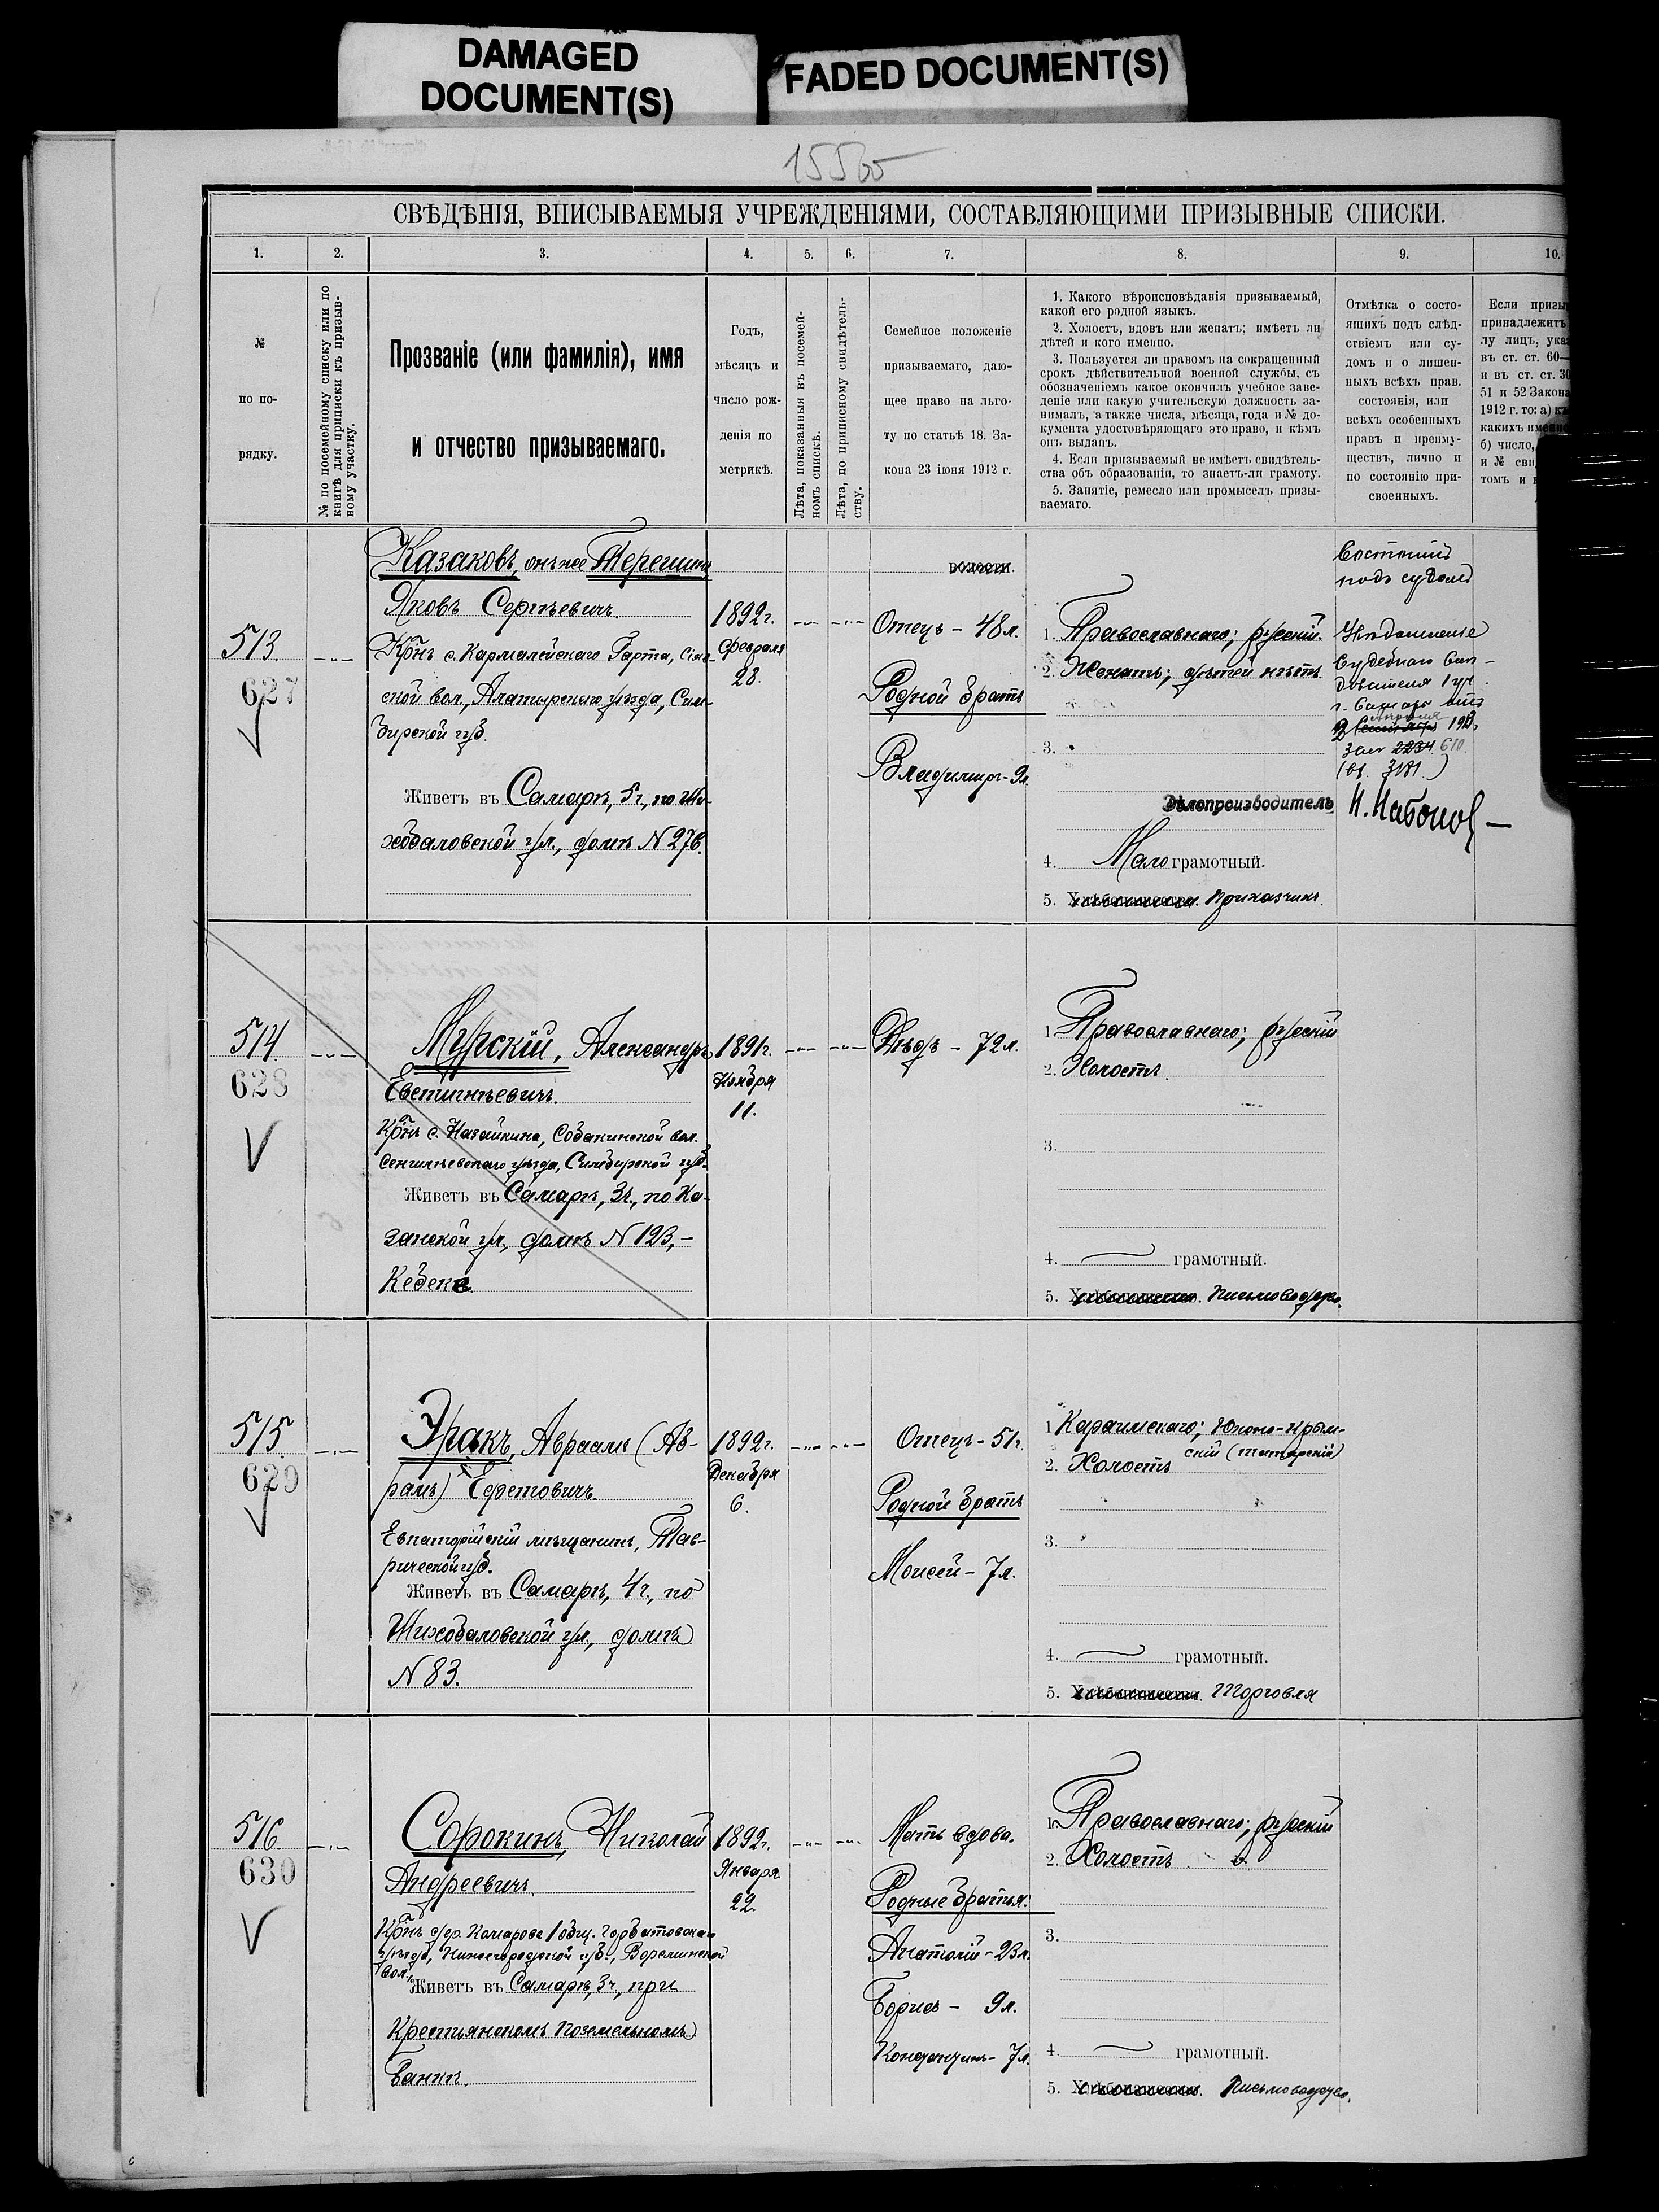 DAMAGED
DOCUMENT(S)
FADED DOCUMENT(S)
СВѢДѢНІЯ, ВПИСЫВАЕМЫЯ УЧРЕЖДЕНІЯМИ, СОСТАВЛЯЮЩИМИ ПРИЗЫВНЫЕ СПИСКИ.
1. 2. 3. 4. 5. 6. 7. 8. 9. 10.
№
по по-
рядку.
№ по посемейному списку или по
книгѣ для приписки къ призыв-
ному участку.
Прозваніе (или фамилія), имя
и отчество призываемаго.
Годъ,
мѣсяцъ и
число рож-
денія по
метрикѣ.
Лѣта, показанныя въ посемей-
номъ спискѣ.
Лѣта, по приписному свидѣтель-
ству.
Семейное положеніе
призываемаго, даю-
щее право на льго-
ту по статьѣ 18. За-
кона 23 іюня 1912 г.
1. Какого вѣроисповѣданія призываемый,
какой его родной языкъ.
2. Холостъ, вдовъ или женатъ; имѣетъ ли
дѣтей и кого именно.
3. Пользуется ли правомъ на сокращенный
срокъ дѣйствительной военной службы, съ
обозначеніемъ какое окончилъ учебное заве-
деніе или какую учительскую должность за-
нималъ, а также числа, мѣсяца, года и № до-
кумента удостовѣряющаго это право, и кѣмъ
онъ выданъ.
4. Если призываемый не имѣетъ свидѣтель-
ства объ образованіи, то знаетъ-ли грамоту.
5. Занятіе, ремесло или промыселъ призы-
ваемаго.
Отмѣтка о состо-
ящихъ подъ слѣд-
ствіемъ или су-
домъ и о лишен-
ныхъ всѣхъ прав.
состоянія, или
всѣхъ особенныхъ
правъ и преиму-
ществъ, лично и
по состоянію при-
своенныхъ.
Если призы
принадлежитъ
лу лицъ, ука
въ ст. ст. 60—
и въ ст. ст. 30
51 и 52 Закона
1912 г. то: а) къ
какихъ именно
б) число,
и № сви
томъ и
513.
627
Казаковъ, онъ же Терешинъ
Яковъ Сергѣевичъ.
Алатырскаго уѣзда, Сим-
бирской губ.
Живетъ въ Самарѣ, 5 ч., по
ул., домъ N 276.
1892 г.
Февраля
28.
волости.
Отецъ – 48 л.
Родной братъ
Владиміръ – 9 л.
1. Православнаго; русскій.
2. Женатъ; дѣтей нѣтъ.
3.
4. Мало грамотный.
5. Приказчикъ.
Состоитъ
подъ судомъ
Дѣлопроизводитель
514
628
Мурскій, Александръ
Евстигнѣевичъ.
Сенгилѣевскаго уѣзда, Симбирской губ.
Живетъ въ Самарѣ, 3 ч., по Ка-
занской ул., домъ N 123, –
1891 г.
Ноября
11.
Дѣдъ – 72 л.
1. Православнаго; русскій
2. Холостъ.
3.
4. грамотный.
5. Письмоводство.
515
629
Эракъ, Авраамъ (Аб-
рамъ) Беретовичъ.
Евпаторійскій мѣщанинъ, Тав-
рической губ.
Живетъ въ Самарѣ, 4 ч., по
ул., домъ
N 83.
1892 г.
Декабря
6.
Отецъ – 51 г.
Родной братъ
Моисей – 7 л.
1. Караимскаго; Южно-Крым-
скій (татарскій)
2. Холостъ
3.
4. грамотный.
5. Торговля
516.
630
Сорокинъ, Николай
Андреевичъ.
Нижегородской губ.,
вол.
Живетъ въ Самарѣ, 3 ч., при
Крестьянскомъ Поземельномъ
Банкѣ.
1892 г.
Января
22.
Мать вдова.
Родные братья:
Анатолій – 23 л.
Борисъ – 9 л.
7 л.
1. Православнаго; русскій
2. Холостъ.
3.
4. грамотный.
5. Письмоводство.